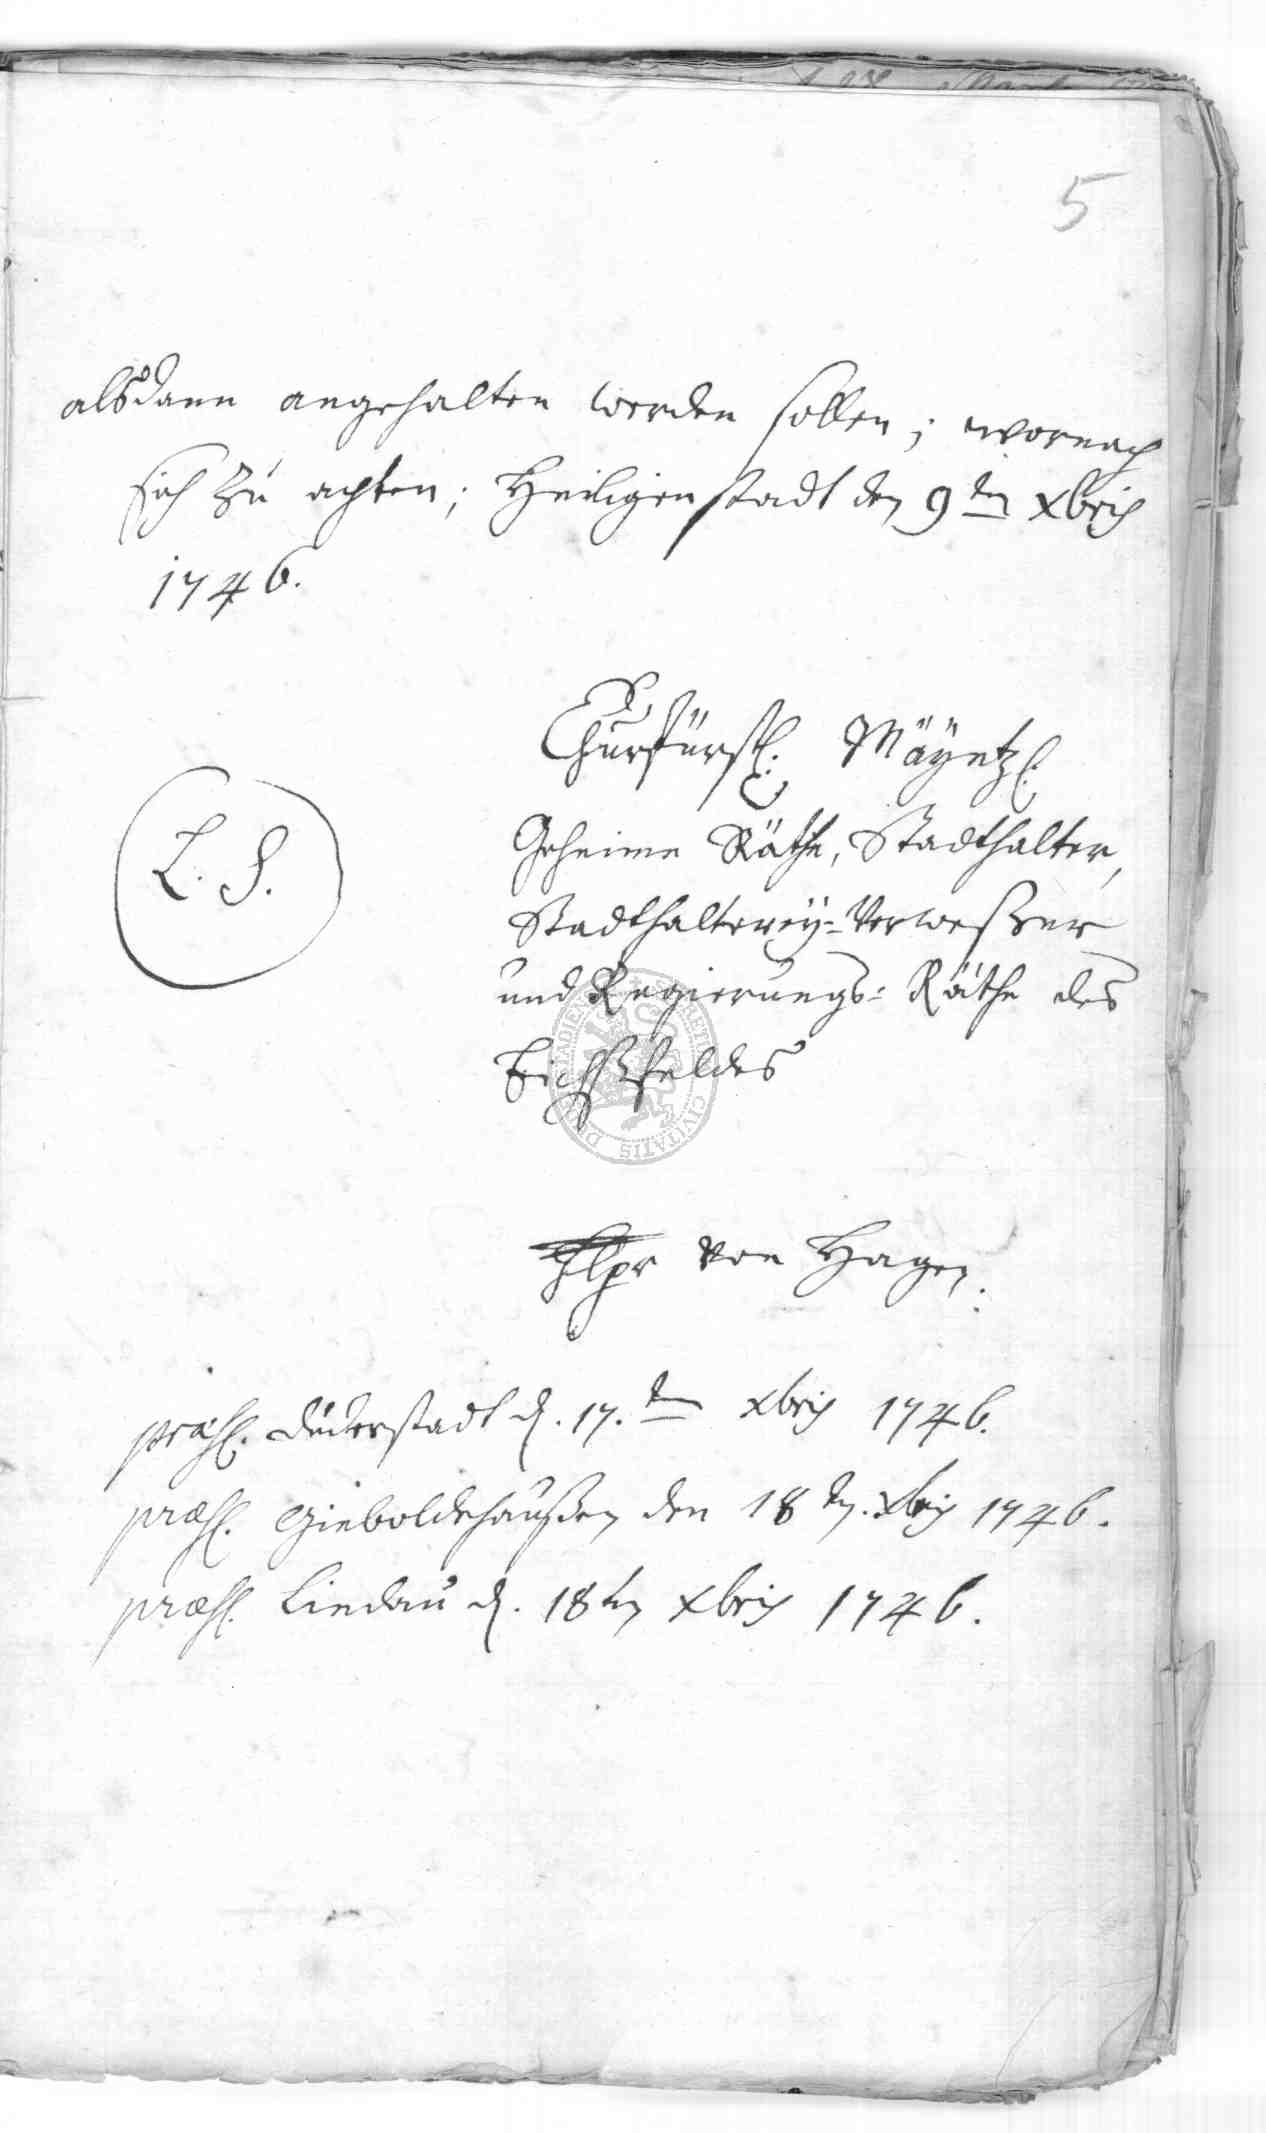 5
alsdann angehalten werden sollen; wornach
sich zu achten; Heiligenstadt den 9ten Xbris
1746.
Churfürstl. Mäyntzl.
L. S.
Geheime Räthe, Stadthalter,
Stadthalterey-Verweßer
und Regierungs-Räthe des
Eichßfeldes
von Hagen.
præs. Duderstadt d. 17.ten Xbris 1746.
præs. Gieboldehaußen den 18ten. Xbris 1746.
præs. Lindau d. 18ten Xbris 1746.